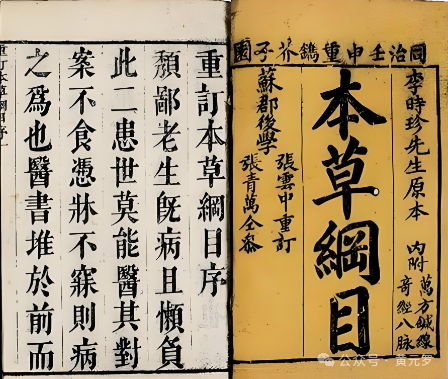 同治壬申重鐫芥子園
李時珍先生原本
内附
萬方鍼線
奇經八脉
本草綱目
蘇郡後學
張雲中重訂
張青萬仝叅
重訂本草綱目序
頽鄙老生旣病且懶負
此二患世莫能醫其對
案不食憑牀不寐則病
之爲也醫書堆於前而
重訂本草綱目序
公众号 · 黄元罗